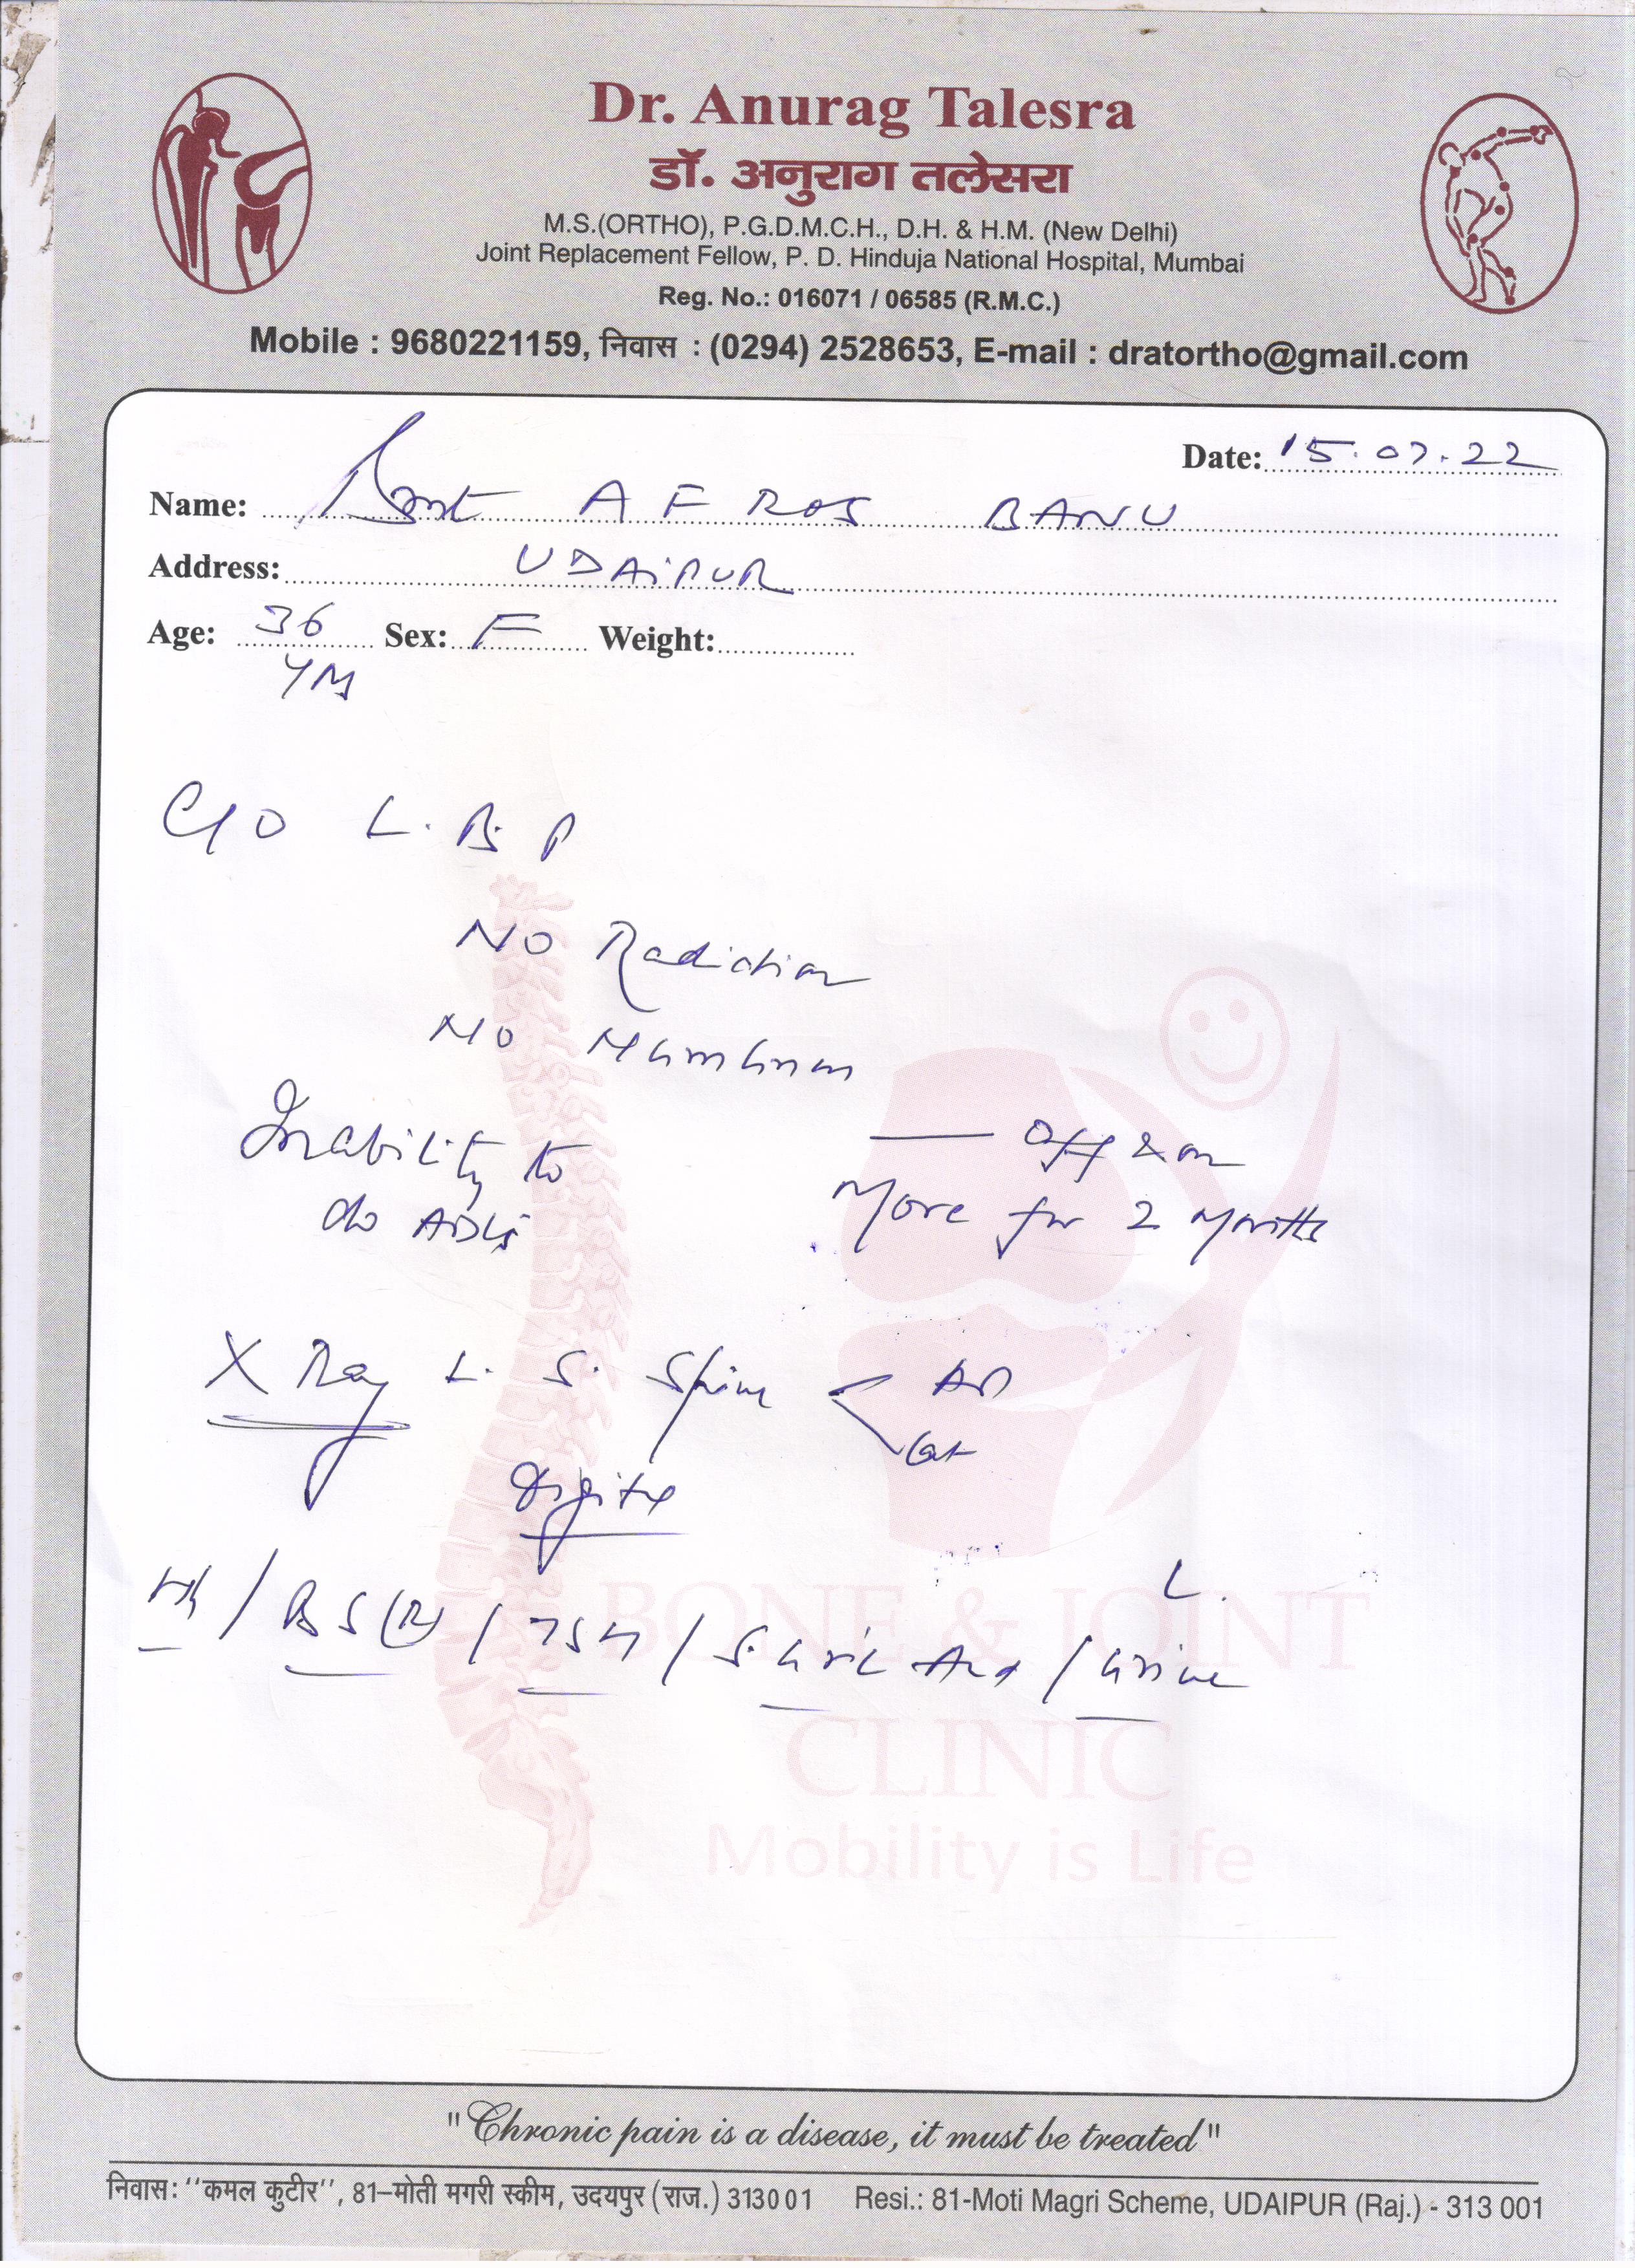 Dr. Anurag Talesra
डॉ. अनुराग तलेसरा
M.S.(ORTHO), P.G.D.M.C.H., D.H. & H.M. (New Delhi)
Joint Replacement Fellow, P. D. Hinduja National Hospital, Mumbai
Reg. No.: 016071 / 06585 (R.M.C.)
Mobile : 9680221159, निवास : (0294) 2528653, E-mail : dratortho@gmail.com
Date: 15.07.22
Name: Smt AFROS BANU
Address: UDAIPUR
Age: 36 Sex: F Weight:
C/O L.B.P
NO Radiation
NO Numbness
Inability to
do ADLs
— Off & on
More for 2 Months
X Ray L. S. Spine < AP
Lat
Digital
Hb / BS(R) / TSH / S. Uric Acid / Urine
BONE & JOINT
CLINIC
Mobility is Life
"Chronic pain is a disease, it must be treated"
निवास: ''कमल कुटीर'', 81–मोती मगरी स्कीम, उदयपुर (राज.) 313001 Resi.: 81-Moti Magri Scheme, UDAIPUR (Raj.) - 313 001